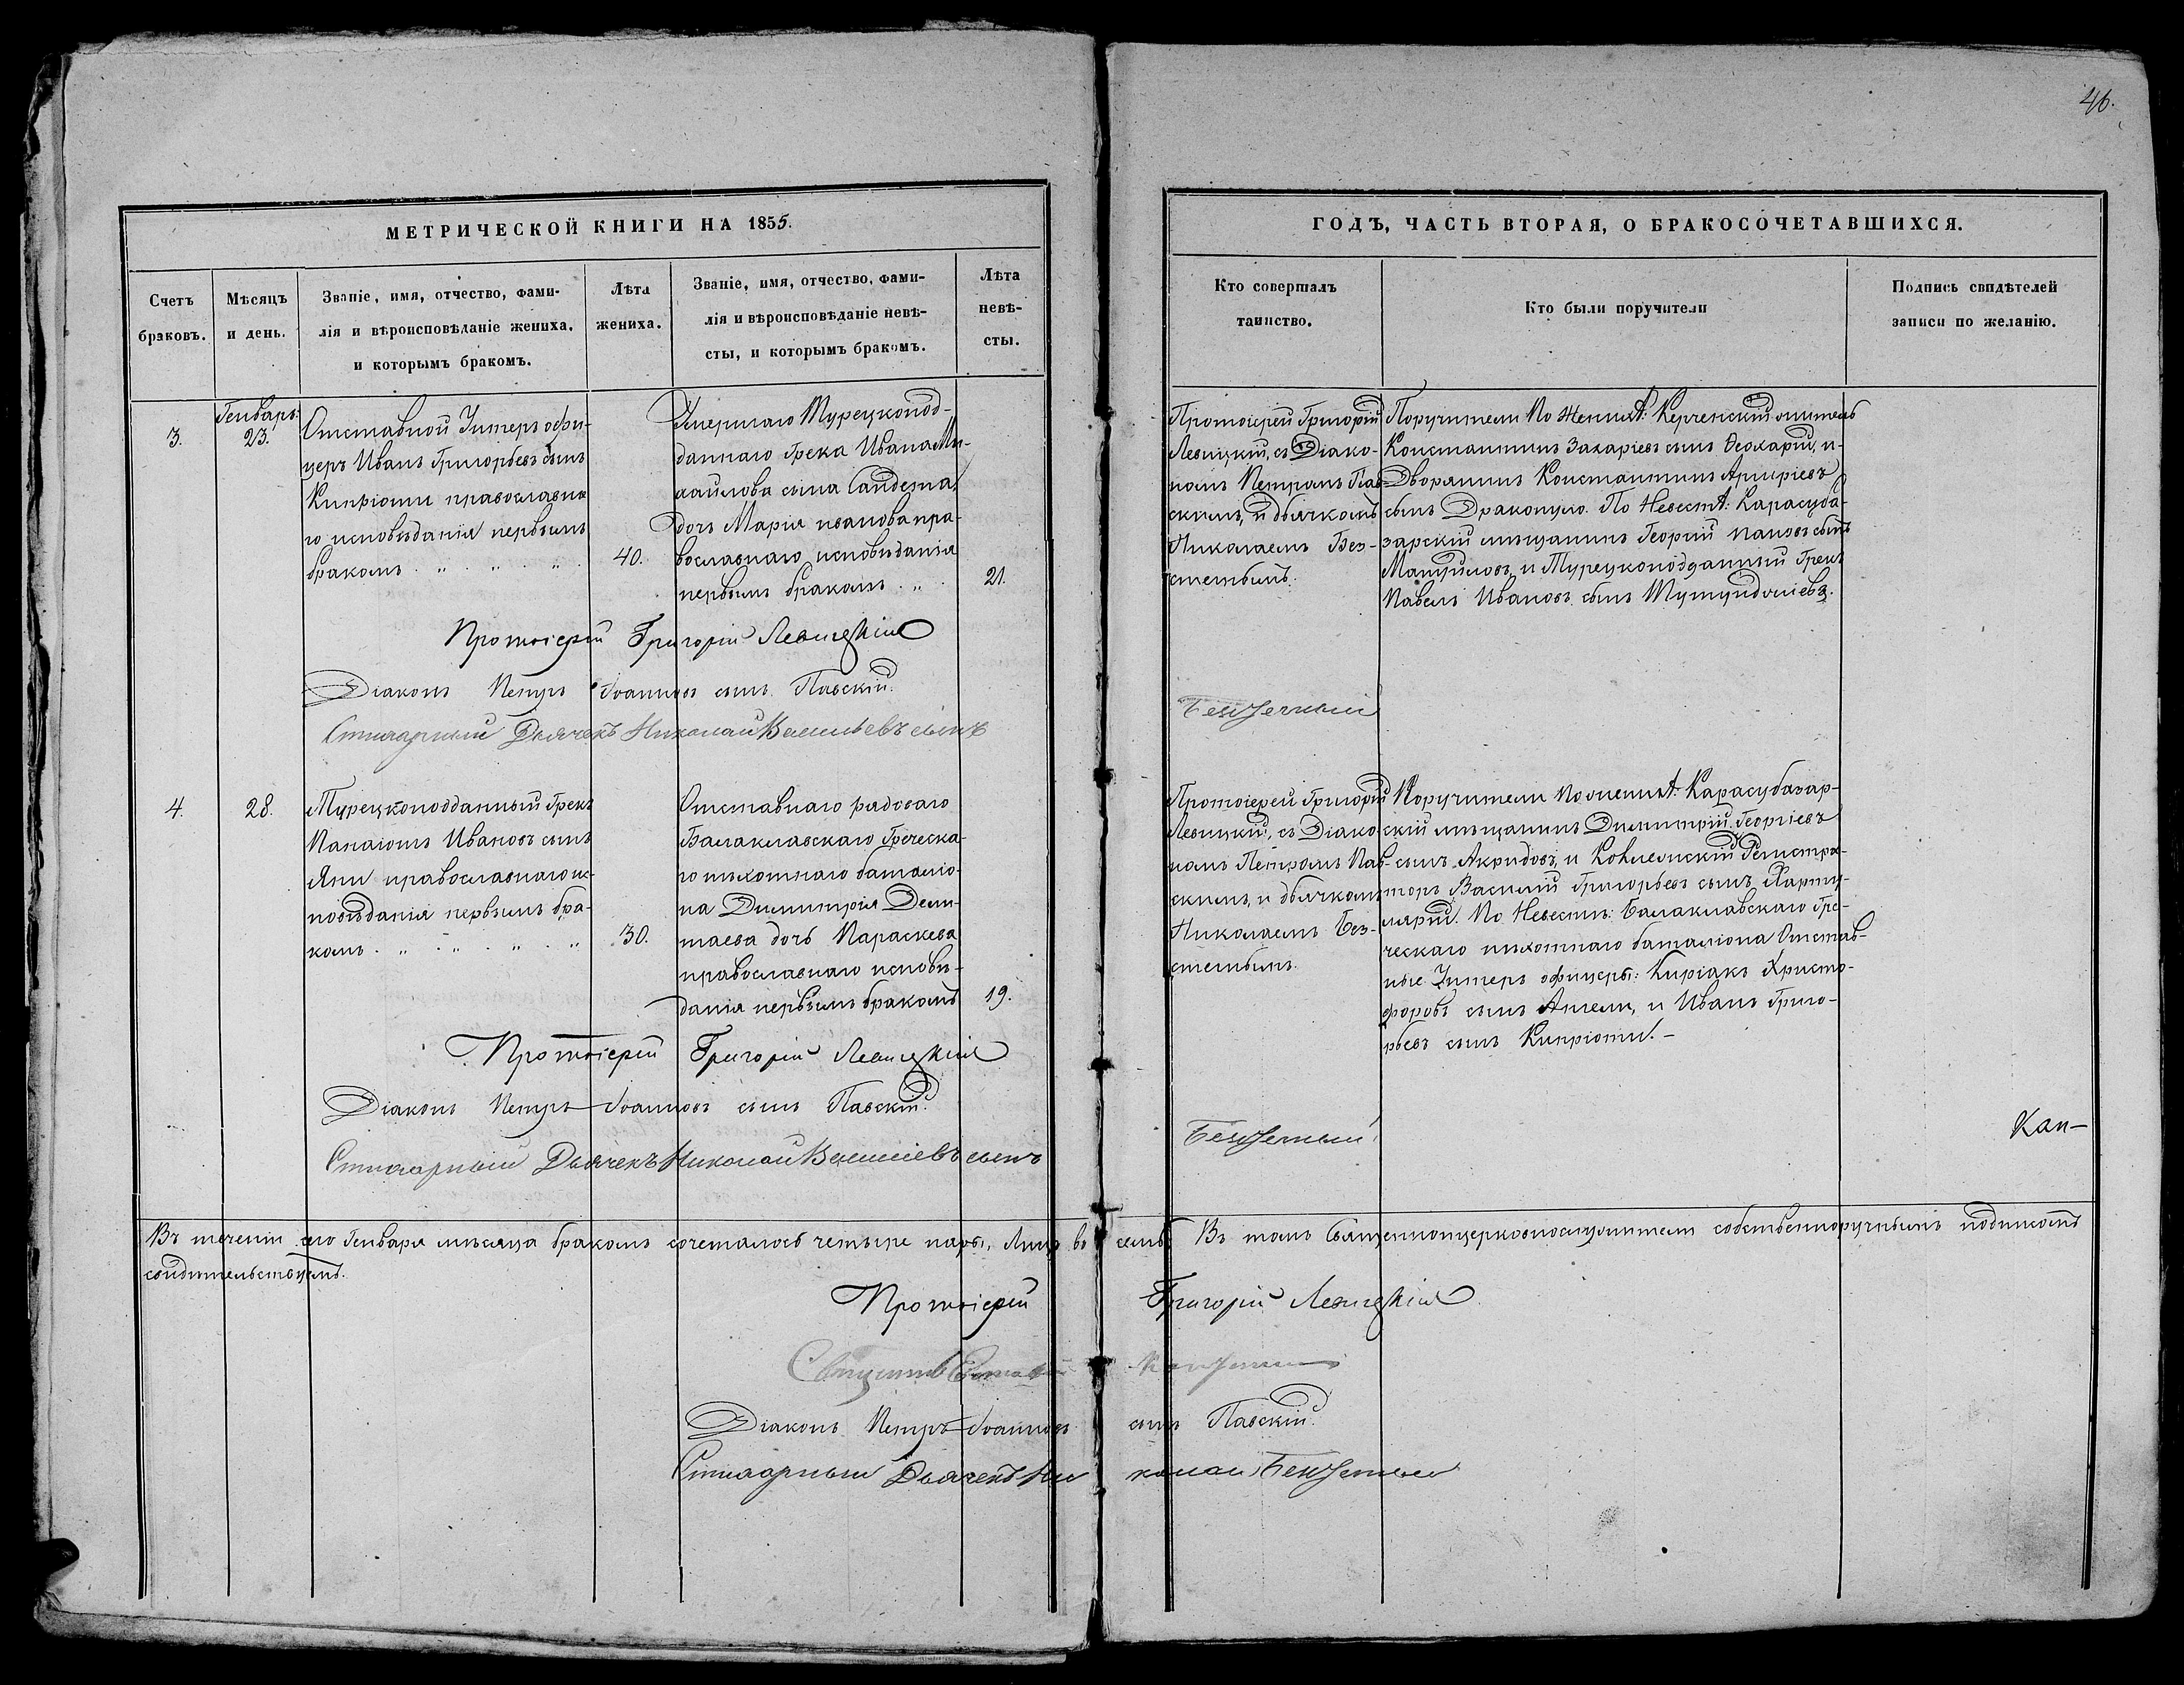 46.
МЕТРИЧЕСКОЙ КНИГИ НА 1855.
ГОДЪ, ЧАСТЬ ВТОРАЯ, О БРАКОСОЧЕТАВШИХСЯ.
Счетъ
браковъ.
Мѣсяцъ
и день.
Званіе, имя, отчество, фами-
лія и вѣроисповѣданіе жениха,
и которымъ бракомъ.
Лѣта
жениха.
Званіе, имя, отчество, фами-
лія и вѣроисповѣданіе невѣ-
сты, и которымъ бракомъ.
Лѣта
невѣ-
сты.
Кто совершалъ
таинство.
Кто были поручители
Подпись свидѣтелей
записи по желанію.
3.
Генварь:
23.
Отставной Унтеръ офи-
церъ Иванъ Григорьевъ сынъ
Кипріоти православна
го исповѣданія первымъ
бракомъ
40.
Умершаго Турецкопод-
даннаго Грека Ивана Ми-
хаилова сына
дочь Марія иванова пра-
вославнаго исповѣданія
первымъ бракомъ
21.
Протоіерей Григорій
Левицкій, съ Діако-
номъ Петромъ Пав-
скимъ, и дьячкомъ
Николаемъ Без-
Поручители По Жених: Керченскій житель
Константинъ Захаріевъ сынъ Феохарій, и
Дворянинъ Константинъ Аргиріевъ
сынъ Дракопуло. По Невест: Карасуба-
зарскій мѣщанинъ Георгій пановъ сынъ
и Турецкоподданный Грекъ
Павелъ Ивановъ сынъ
Протоіерей Григорій Левицкій
Діаконъ Петръ Іоанновъ сынъ Павскій.
Стихарный Дьячекъ Николай Васильевъ сынъ
4.
28.
Турецкоподданный Грекъ
Панаіотъ Ивановъ сынъ
Яни православнаго ис-
повѣданія первымъ бра-
комъ
30.
Отставнаго рядоваго
Балаклавскаго Греческа-
го пѣхотнаго баталіо-
на Димитрія Дели-
таева дочь Параскева
православнаго исповѣ-
данія первымъ бракомъ
19.
Протоіерей Григорій
Левицкій, съ Діако
номъ Петромъ Пав-
скимъ, и дьячкомъ
Николаемъ Без-
Поручители По жених: Карасубазар-
скій мѣщанинъ Димитрій Георгіевъ
сынъ Акридовъ, и Регистра-
торъ Василій Григорьевъ сынъ Харту-
лярій. По Невестѣ: Балаклавскаго Гре-
ческаго пѣхотнаго баталіона Отстав-
ные Унтеръ офицеры: Киріакъ Христо-
форовъ сынъ Ангели, и Иванъ Григо-
рьевъ сынъ Кипріоти. –
Протоіерей Григорій Левицкій
Діаконъ Петръ Іоанновъ сынъ Павскій.
Стихарный Дьячекъ Николай Васильевъ сынъ
Въ теченіи сего Генваря мѣсяца бракомъ сочеталось четыре пары, Лицъ во семь. Въ томъ Священноцерковнослужители собственноручнымъ подпискомъ
свидѣтельствуемъ.
Протоіерей Григорій Левицкій
Діаконъ Петръ Іоанновъ сынъ Павскій.
Стихарный Дьячекъ Николай